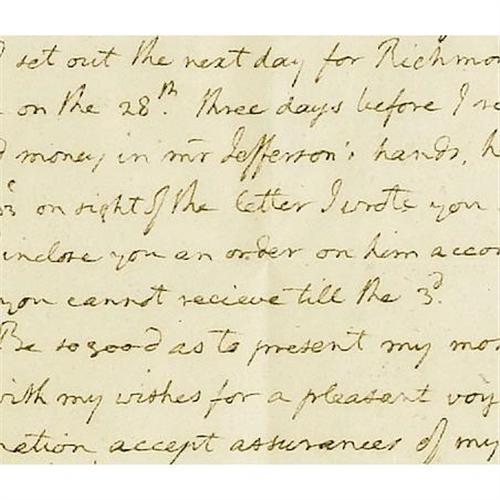 set out the next day for Richmon
on the 28th. three days before I re
d money in mr Jefferson's hands, h
on sight of the letter I wrote you
inclose you an order on him acco
you cannot recieve till the 3d.
Be so good as to present my mo
with my wishes for a pleasant voy
nation accept assurances of my